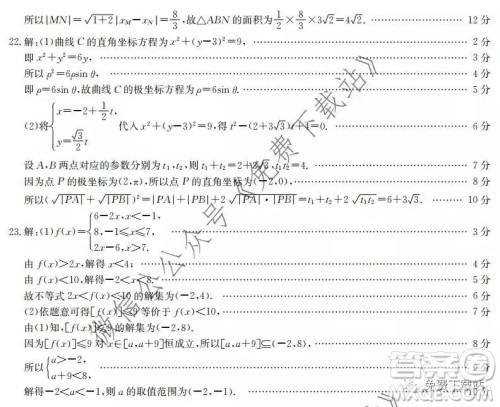 所以|MN|=√(1+2)|x_M-x_N|=8/3,故△ABN的面积为1/2×8/3×3√2=4√2. 12分
22.解:(1)曲线C的直角坐标方程为x²+(y-3)²=9, 2分
即x²+y²=6y, 3分
所以ρ²=6ρsin θ,
即ρ=6sin θ,故曲线C的极坐标方程为ρ=6sin θ. 5分
(2)将{x=-2+1/2t, y=√3/2t 代入x²+(y-3)²=9,得t²-(2+3√3)t+4=0. 6分
设A,B两点对应的参数分别为t₁,t₂,则t₁+t₂=2+3√3,t₁t₂=4. 7分
因为点P的极坐标为(2,π),所以点P的直角坐标为(-2,0) 8分
所以(√|PA|+√|PB|)²=|PA|+|PB|+2√|PA|·|PB|=t₁+t₂+2√t₁t₂=6+3√3. 10分
23.解:(1)f(x)={6-2x,x<-1, 8,-1≤x≤7, 2x-6,x>7. 3分
由f(x)>2x,解得x<4; 4分
由f(x)<10,解得-2<x<8. 5分
故不等式2x<f(x)<10的解集为(-2,4). 6分
(2)依题意可得[f(x)]≤9等价于f(x)<10 7分
由(1)知,[f(x)]≤9的解集为(-2,8).
因为[f(x)]≤9对x∈[a,a+9]恒成立,所以[a,a+9]⊆(-2,8). 8分
所以{a>-2, a+9<8,
解得-2<a<-1,则a的取值范围为(-2,-1).
微信公众号《免费下载站》
免费下载站